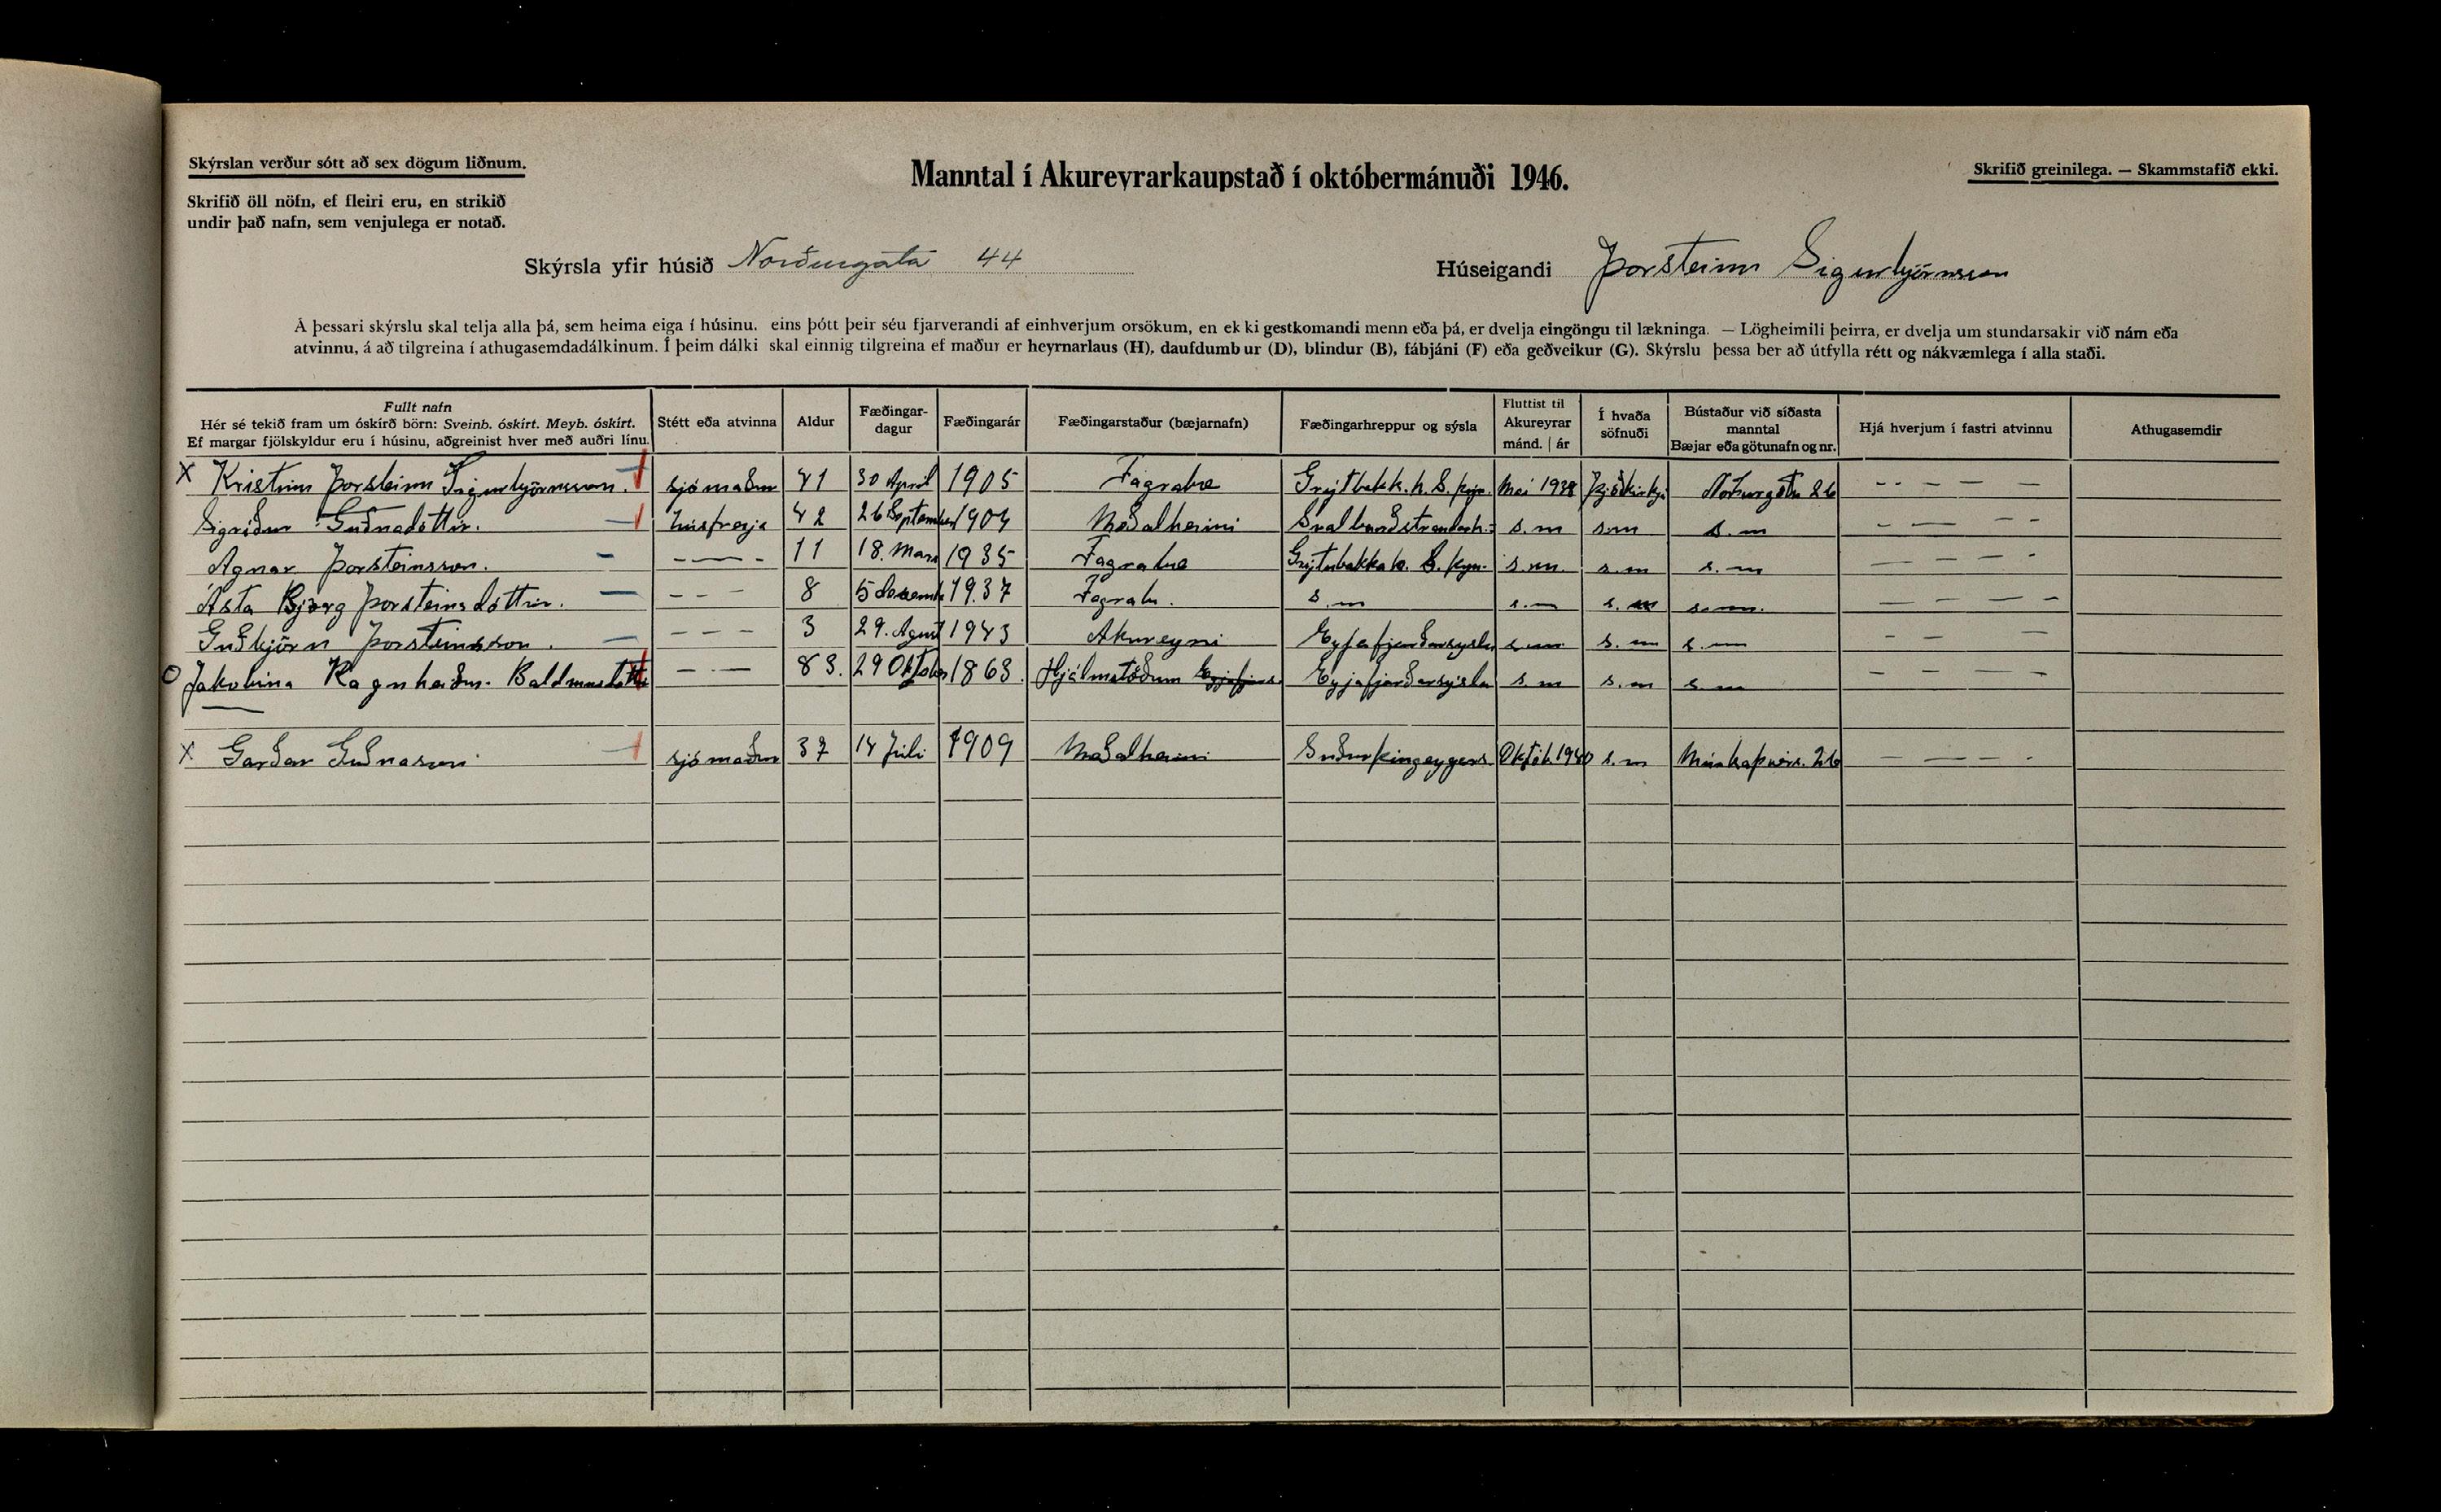 Skýrslan verður sótt að sex dögum liðnum.
Manntal í Akureyrarkaupstað í októbermánuði 1946.
Skrifið greinilega. — Skammstafið ekki.
Skrifið öll nöfn, ef fleiri eru, en strikið
undir það nafn, sem venjulega er notað.
Skýrsla yfir húsið Norðurgata 44
Húseigandi Þorsteinn Sigurbjörnsson
Á þessari skýrslu skal telja alla þá, sem heima eiga í húsinu. eins þótt þeir séu fjarverandi af einhverjum orsökum, en ekki gestkomandi menn eða þá, er dvelja eingöngu til lækninga. — Lögheimili þeirra, er dvelja um stundarsakir við nám eða
atvinnu, á að tilgreina í athugasemdadálkinum. Í þeim dálki skal einnig tilgreina ef maður er heyrnarlaus (H), daufdumbur (D), blindur (B), fábjáni (F) eða geðveikur (G). Skýrslu þessa ber að útfylla rétt og nákvæmlega í alla staði.
Fullt nafn
Hér sé tekið fram um óskírð börn: Sveinb. óskírt. Meyb. óskírt.
Ef margar fjölskyldur eru í húsinu, aðgreinist hver með auðri línu.
Stétt eða atvinna
Aldur
Fæðingar-
dagur
Fæðingarár
Fæðingarstaður (bæjarnafn)
Fæðingarhreppur og sýsla
Fluttist til
Akureyrar
mánd. | ár
Í hvaða
söfnuði
Bústaður við síðasta
manntal
Bæjar eða götunafn og nr.
Hjá hverjum í fastri atvinnu
Athugasemdir
X Kristinn Þorsteinn Sigurbjörnsson. sjómaður 41 30 April 1905 Fagrabæ Mai 1938 Norðurgötu 26 -- - - -
Sigríður Guðnadóttir. húsfreyja 42 26 September 1904 Meðalheimi s.m s.m s.m - - - -
Agnar Þorsteinsson. - - - 11 18. Mars 1935 Fagrabæ s.m. s.m s.m - - - -
Ásta Björg Þorsteinsdóttir. - - - 8 5 Desemb 1937 Fagrab. s.m s.m s.m s.m. - - - -
Guðbjörn Þorsteinsson. - - - 3 29. Agust 1943 Akureyri Eyjafjarðarsýslu s.m s.m s.m - - -
O Jakobina Ragnheiður - - - 83. 29 Oktober 1863. Hjálmstöðum Eyjafjarðarsýslu s.m s.m s.m - - -
X Garðar Guðnason sjómaður 37 14 Júli 1909 Meðalheimi Októb. 1940 s.m - - - -